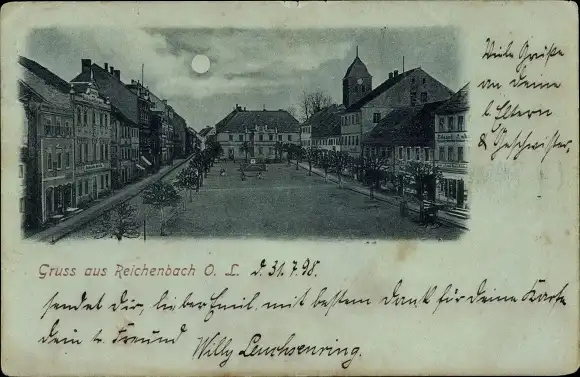 Viele Grüße
an Deine
l. Eltern
& Geschwister.
Gruss aus Reichenbach O. L. d. 31.7.98.
sendet Dir, lieber Emil, mit bestem Dank für Deine Karte
Dein tr. Freund Willy Leuchsenring.